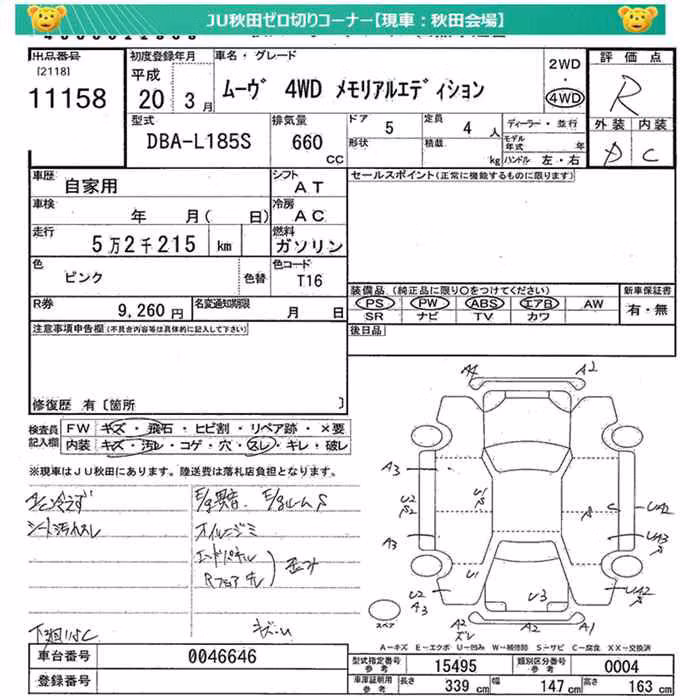 JU秋田ゼロ切りコーナー【現車：秋田会場】
出品番号
[2118]
11158
初度登録年月
平成
20 3月
車名・グレード
ムーヴ 4WD メモリアルエディション
2WD
・
4WD
評価点
R
外装 内装
D C
型式
DBA-L185S
排気量
660
CC
ドア 5
形状
定員 4 人
積載 kg
ディーラー・並行
モデル年式 年
ハンドル 左・右
車歴
自家用
シフト
AT
車検
年 月( 日)
冷房
AC
走行
5万2千215 km
燃料
ガソリン
色
ピンク
色替
色コード
T16
R券
9,260円
名変通知期限
月 日
セールスポイント(正常に機能するものに限ります)
装備品(純正品に限り○をつけてください)
PS PW ABS エアB AW
SR ナビ TV カワ
新車保証書
有・無
後日品
注意事項申告欄(不具合内容等は具体的に記入して下さい)
修復歴 有〔箇所 〕
検査員記入欄
FW キズ・飛石・ヒビ割・リペア跡・×要
内装 キズ・汚レ・コゲ・穴・スレ・キレ・破レ
※現車はJU秋田にあります。陸送費は落札店負担となります。
シート汚れスレ
オイルニジミ
エンドパネル
歪み
下廻りサビ
A4 A2
A3
U2
U1
S
C
UA2
A3
UA3
U1
U3
U2
A3
UA2
スペア
A2
ズレ
A2
A1
A－キズ E－エクボ U－凹み W－補修跡 S－サビ C－腐食 XX－交換済
車台番号
0046646
登録番号
型式指定番号
参考
15495
類別区分番号
参考
0004
車庫証明用
参考
長さ 339 cm
幅 147 cm
高さ 163 cm